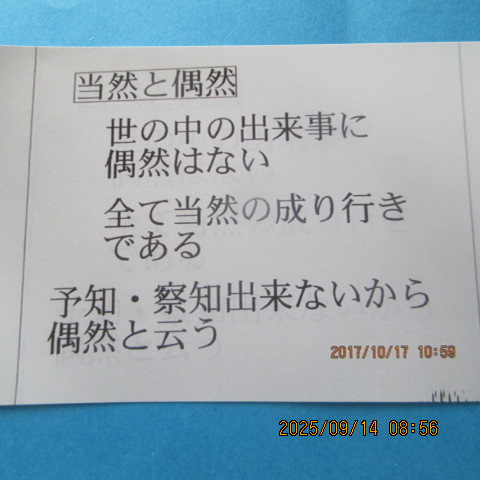 当然と偶然
世の中の出来事に
偶然はない
全て当然の成り行き
である
予知・察知出来ないから
偶然と云う
2017/10/17 10:59
2025/09/14 08:56